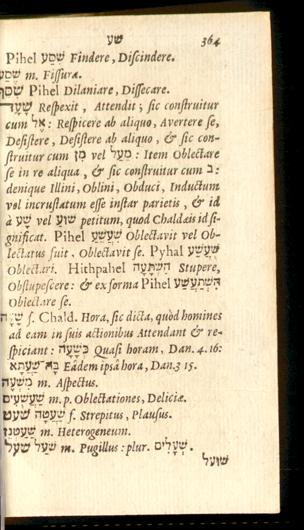 שע 364
Pihel שִׁסַּע Findere, Discindere.
שֶׁסַע m. Fissura.
שסף Pihel Dilaniare, Dissecare.
שָׁעָה Respexit, Attendit; sic construitur
cum אֶל: Respicere ab aliquo, Avertere se,
Desistere, Desistere ab aliquo, & sic con-
struitur cum מִן vel מֵעַל: Item Oblectare
se in re aliqua, & sic construitur cum ב:
denique Illini, Oblini, Obduci, Inductum
vel incrustatum esse instar parietis, & id
à שָׁע vel שׁוּע petitum, quod Chaldæis id si-
gnificat. Pihel שִׁעֲשַׁע Oblectavit vel Ob-
lectatus fuit, Oblectavit se. Pyhal שֻׁעֲשַׁע
Oblectari. Hithpahel הִשְׁתָּעָה Stupere,
Obstupescere: & ex forma Pihel הִשְׁתַּעֲשַׁע
Oblectare se.
שָׁעָה f. Chald. Hora, sic dicta, quòd homines
ad eam in suis actionibus Attendant & re-
spiciant: כְּשָׁעָה Quasi horam, Dan. 4. 16:
בַּהּ־שַׁעֲתָא Eâdem ipsâ hora, Dan. 3 15.
מִשְׁעָה m. Aspectus.
שַׁעֲשֻׁעִים m. p. Oblectationes, Deliciæ.
שעט שַׁעֲטָה f. Strepitus, Plausus.
שַׁעַטְנֵז m. Heterogeneum.
שעל שֹׁעַל m. Pugillus: plur. שְׁעָלִים.
שועל